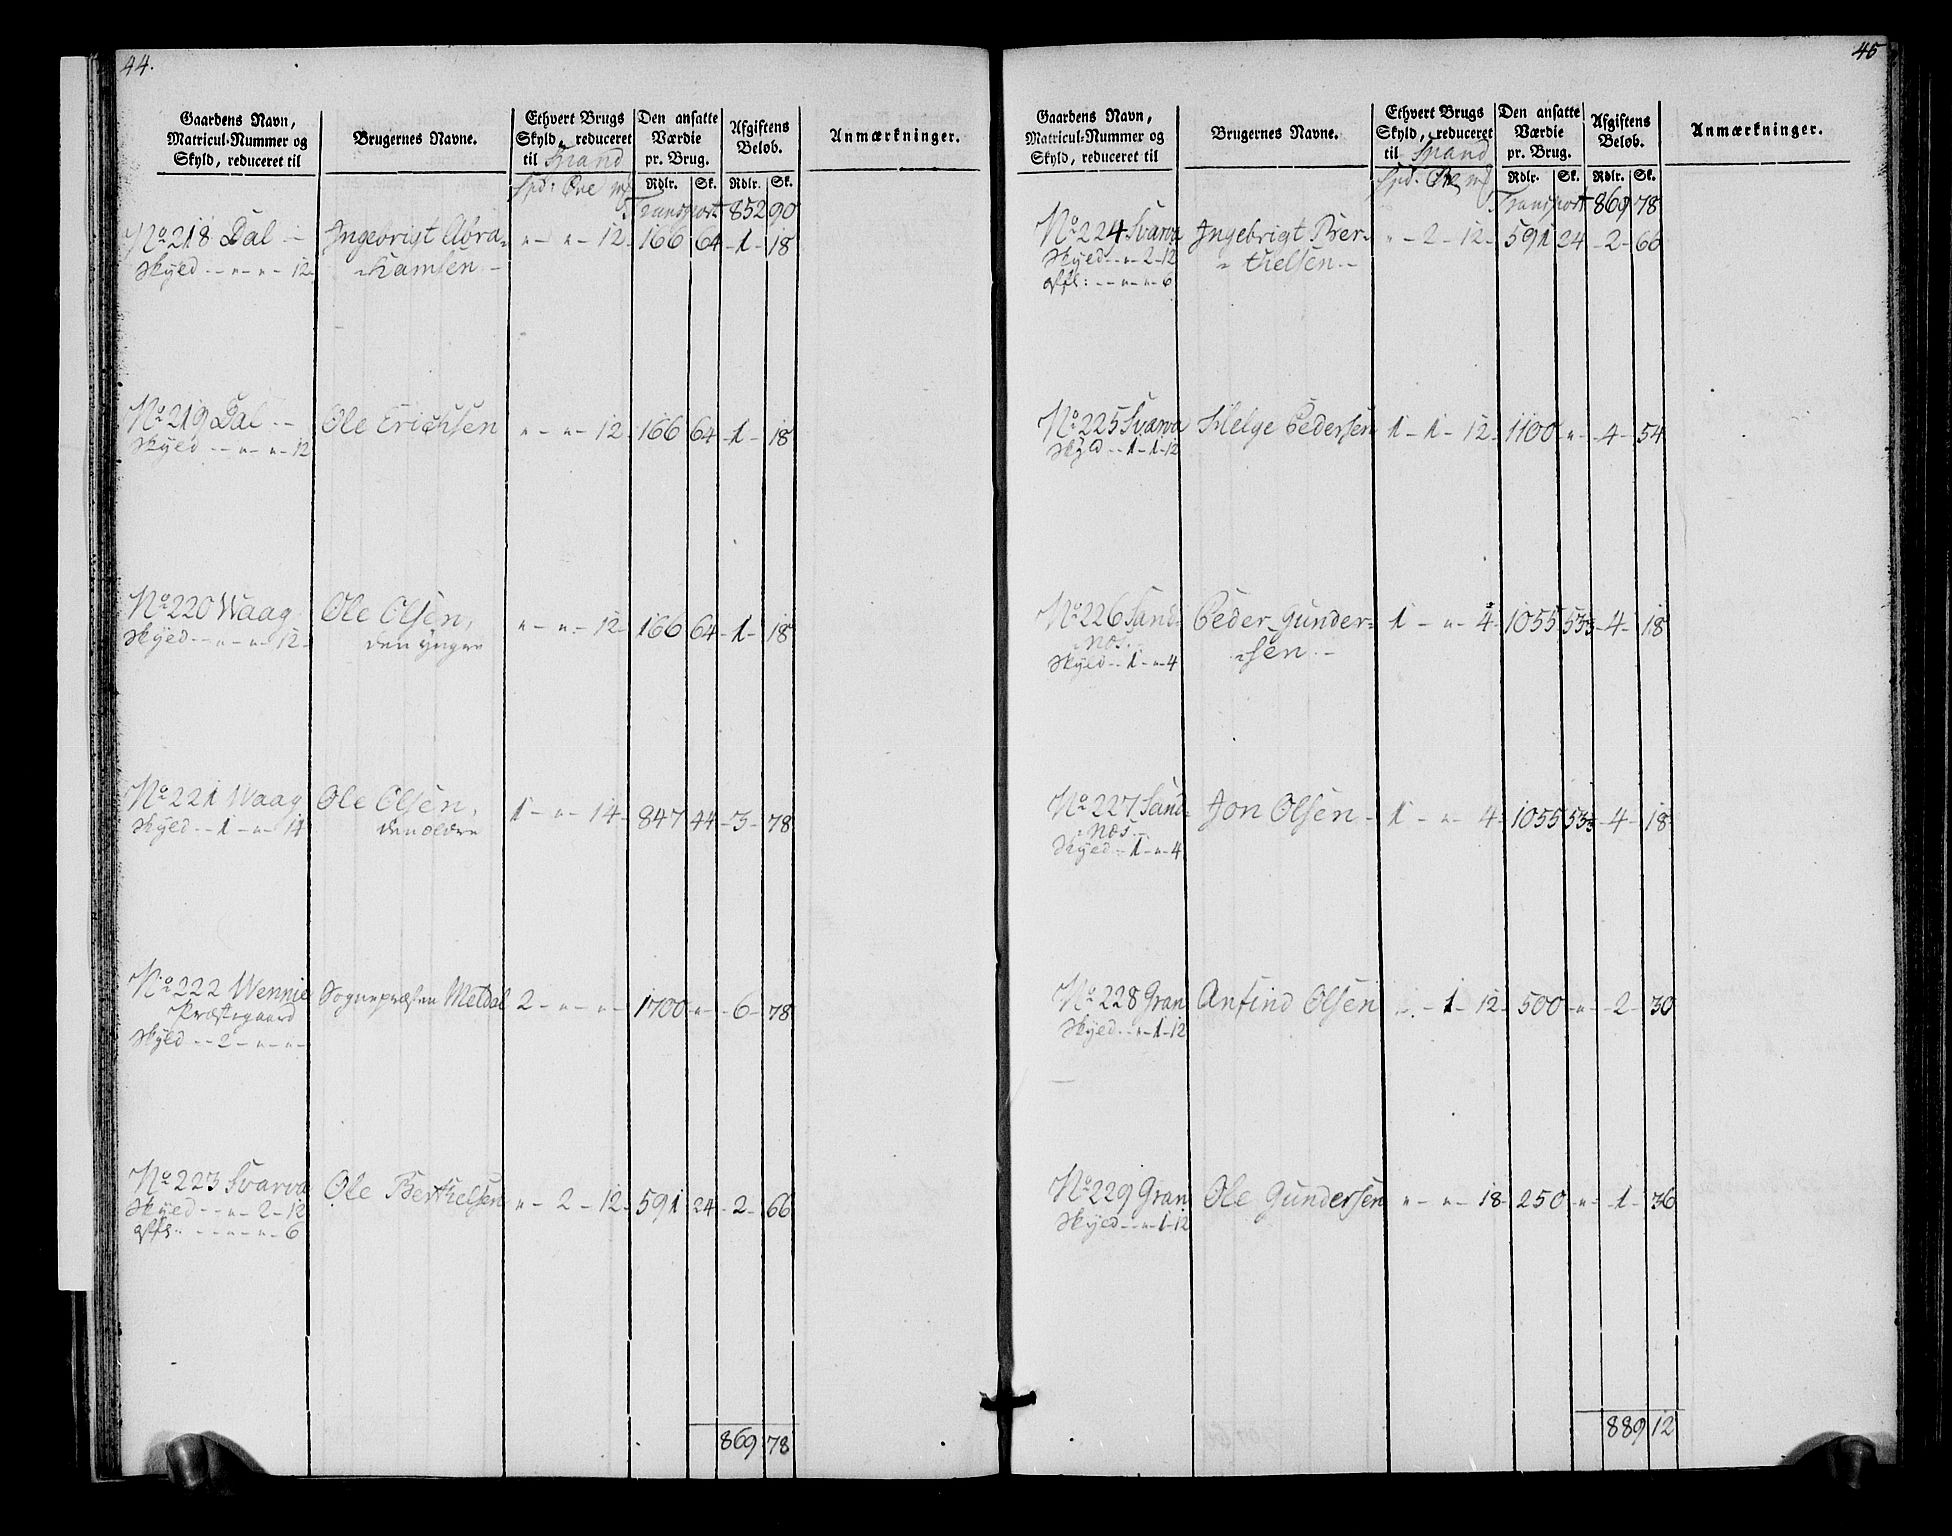 44.
Gaardens Navn, Matricul-Nummer og Skyld, reduceret til
Brugernes Navne.
Ethvert Brugs Skyld, reduceret til Spand
Den ansatte Værdie pr. Brug.
Afgiftens Beløb.
Anmærkninger.
Spd: Øre mk
Rdlr. Sk. Rdlr. Sk.
Transport 852 90
No 218 Dal Ingebrigt Abra= " - " - 12 - 166 64 - 1 - 18
Skyld - - " - " - 12 = hamsen
No 219 Dal - - Ole Erichsen " - " - 12 - 166 64 - 1 - 18
Skyld - - " - " - 12
No 220 Waag Ole Olsen, " - " - 12 - 166 64 - 1 - 18
Skyld - - " - " - 12 - den yngre
No 221 Waag Ole Olsen, 1 - " - 14 - 847 44 - 3 - 78
Skyld - - 1 - " - 14 den ældre
No 222 Wennie Sognepræsten Meldal 2 - " - " - 1700 - " - 6 - 78
Præstegaard
Skyld - - 2 - " - " -
No 223 Svarva Ole Berthelsen " - 2 - 12 - 591 24 - 2 - 66
Skyld - - " - 2 - 12
- - " - " - 6
869 78
45
Gaardens Navn, Matricul-Nummer og Skyld, reduceret til
Brugernes Navne.
Ethvert Brugs Skyld, reduceret til Spand
Den ansatte Værdie pr. Brug.
Afgiftens Beløb.
Anmærkninger.
Spd. Øre mk
Rdlr. Sk. Rdlr. Sk.
Transport 869 78
No 224 Svarva Ingebrigt Ber= " - 2 - 12 - 591 24 - 2 - 66
Skyld - - " - 2 - 12 = thelsen
- - " - " - 6
No 225 Svarva Helge Pedersen 1 - 1 - 12 - 1100 " - 4 - 54
Skyld - - 1 - 1 - 12
No 226 Sand= Peder Gunder= 1 - " - 4 - 1055 53 - 4 - 18
= næs. = sen
Skyld - - 1 - " - 4
No 227 Sand= Jon Olsen - 1 - " - 4 - 1055 53 - 4 - 18
= næs. -
Skyld - 1 - " - 4
No 228 Gran Anfind Olsen " - 1 - 12 - 500 - " - 2 - 30
Skyld - " - 1 - 12
No 229 Gran Ole Gundersen " - " - 18 - 250 - " - 1 - 36
Skyld - - " - 1 - 12
889 12